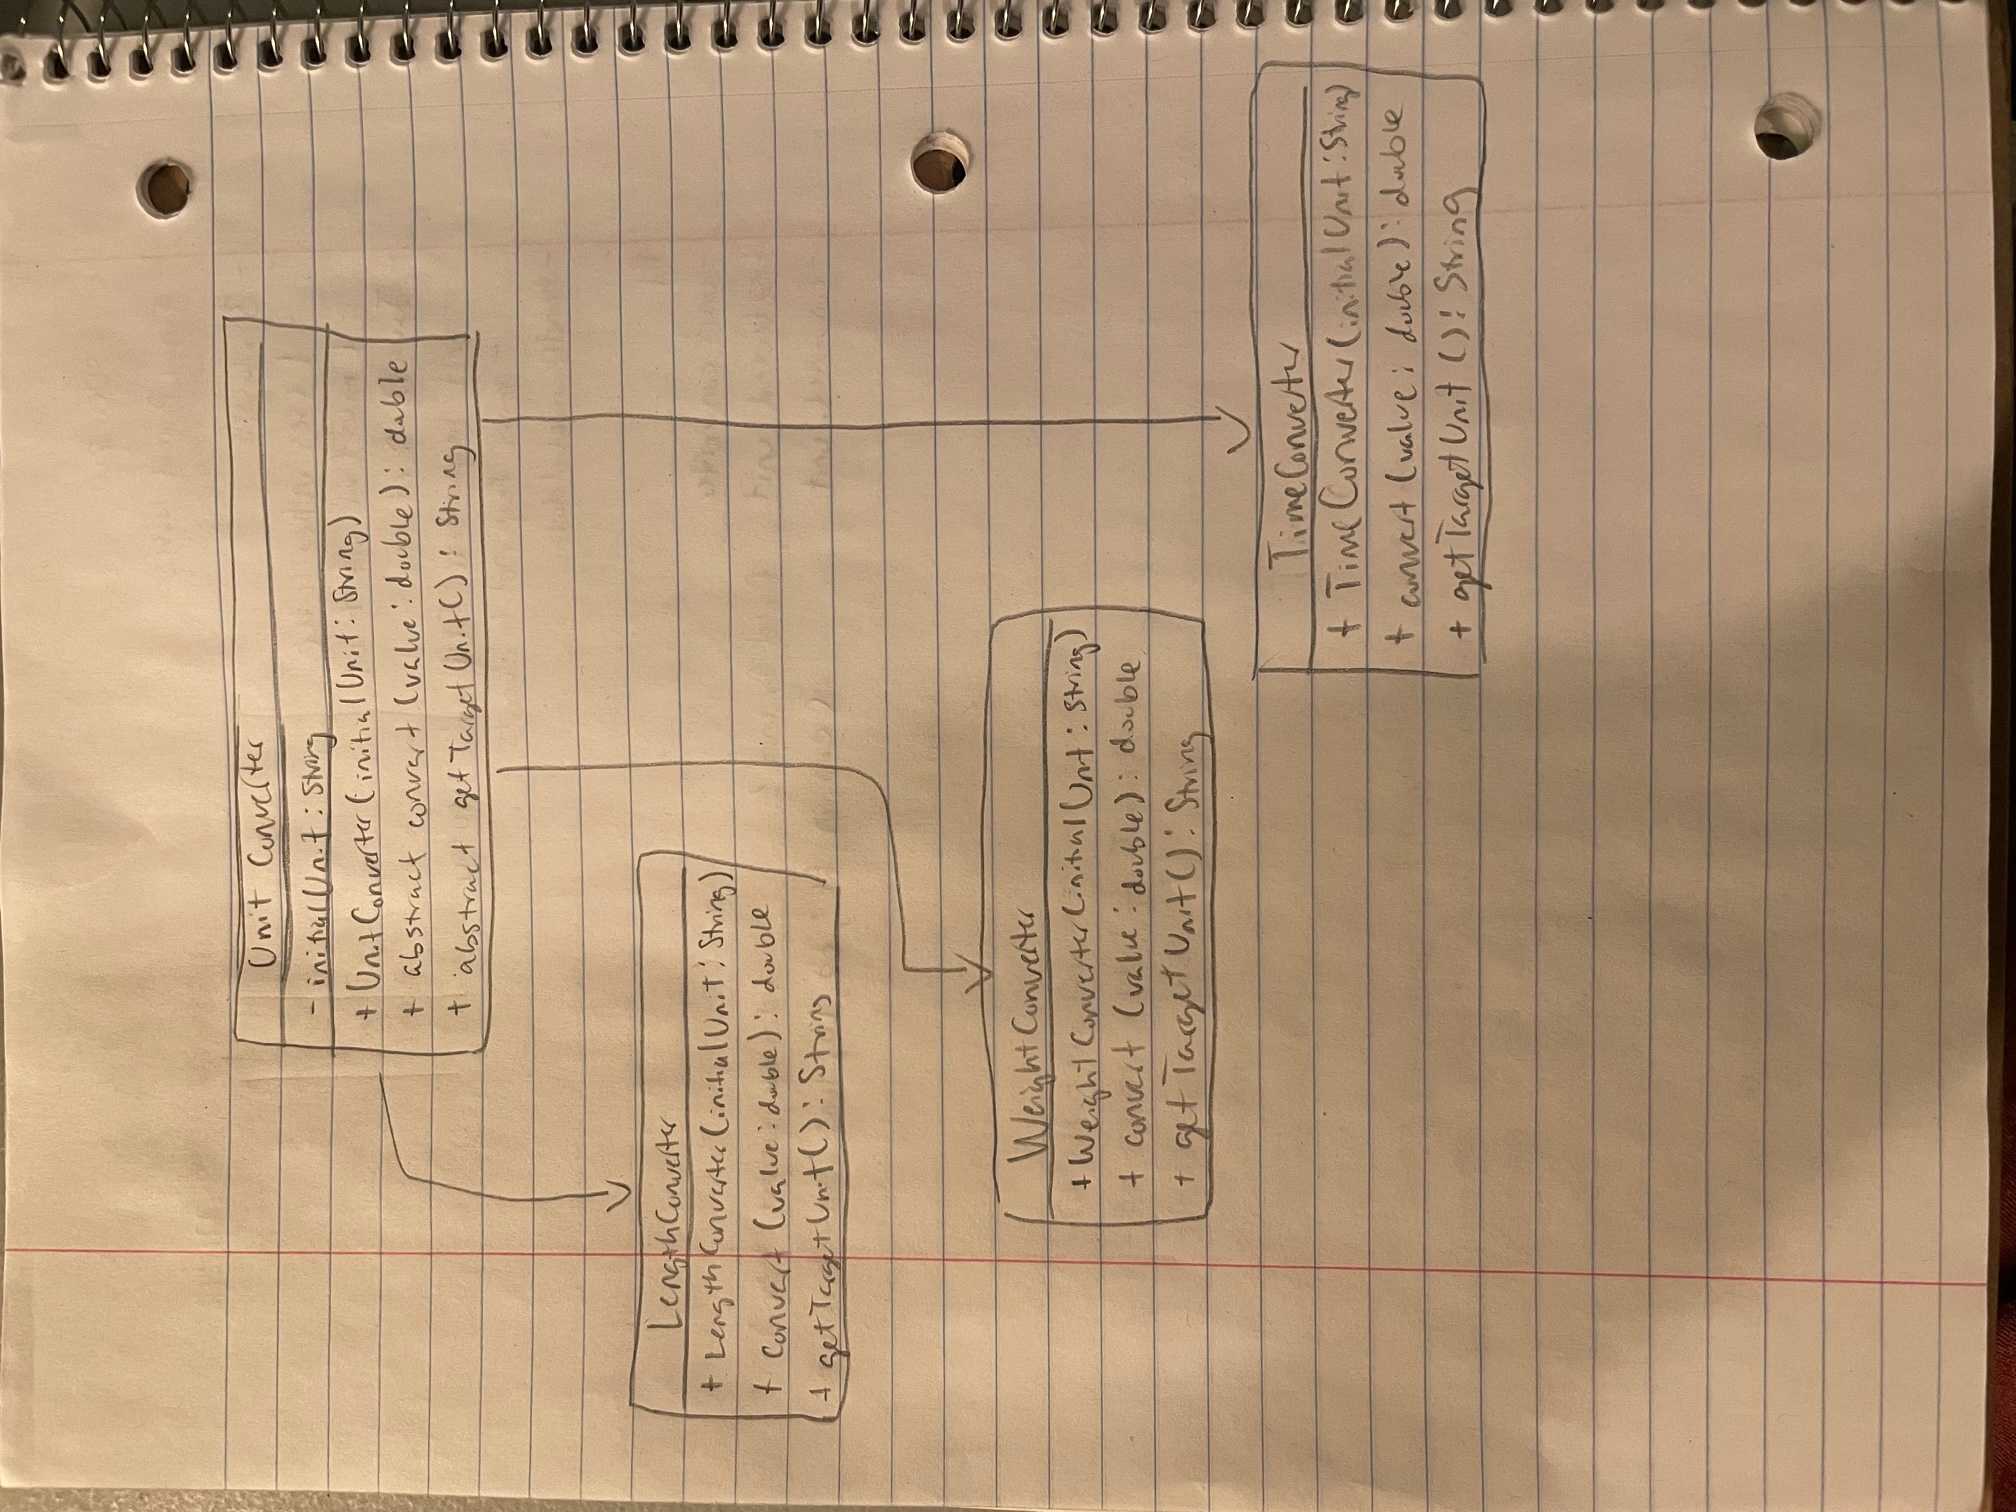 Unit Converter
- initialUnit : String
+ UnitConverter(initialUnit: String)
+ abstract convert (value: double) : double
+ abstract getTargetUnit() : String
LengthConverter
+ LengthConverter(initialUnit: String)
+ convert (value: double) : double
+ getTargetUnit() : String
WeightConverter
+ WeightConverter(initialUnit : String)
+ convert (value : double) : double
+ getTargetUnit() : String
TimeConverter
+ TimeConverter(initialUnit : String)
+ convert (value : double) : double
+ getTargetUnit () : String